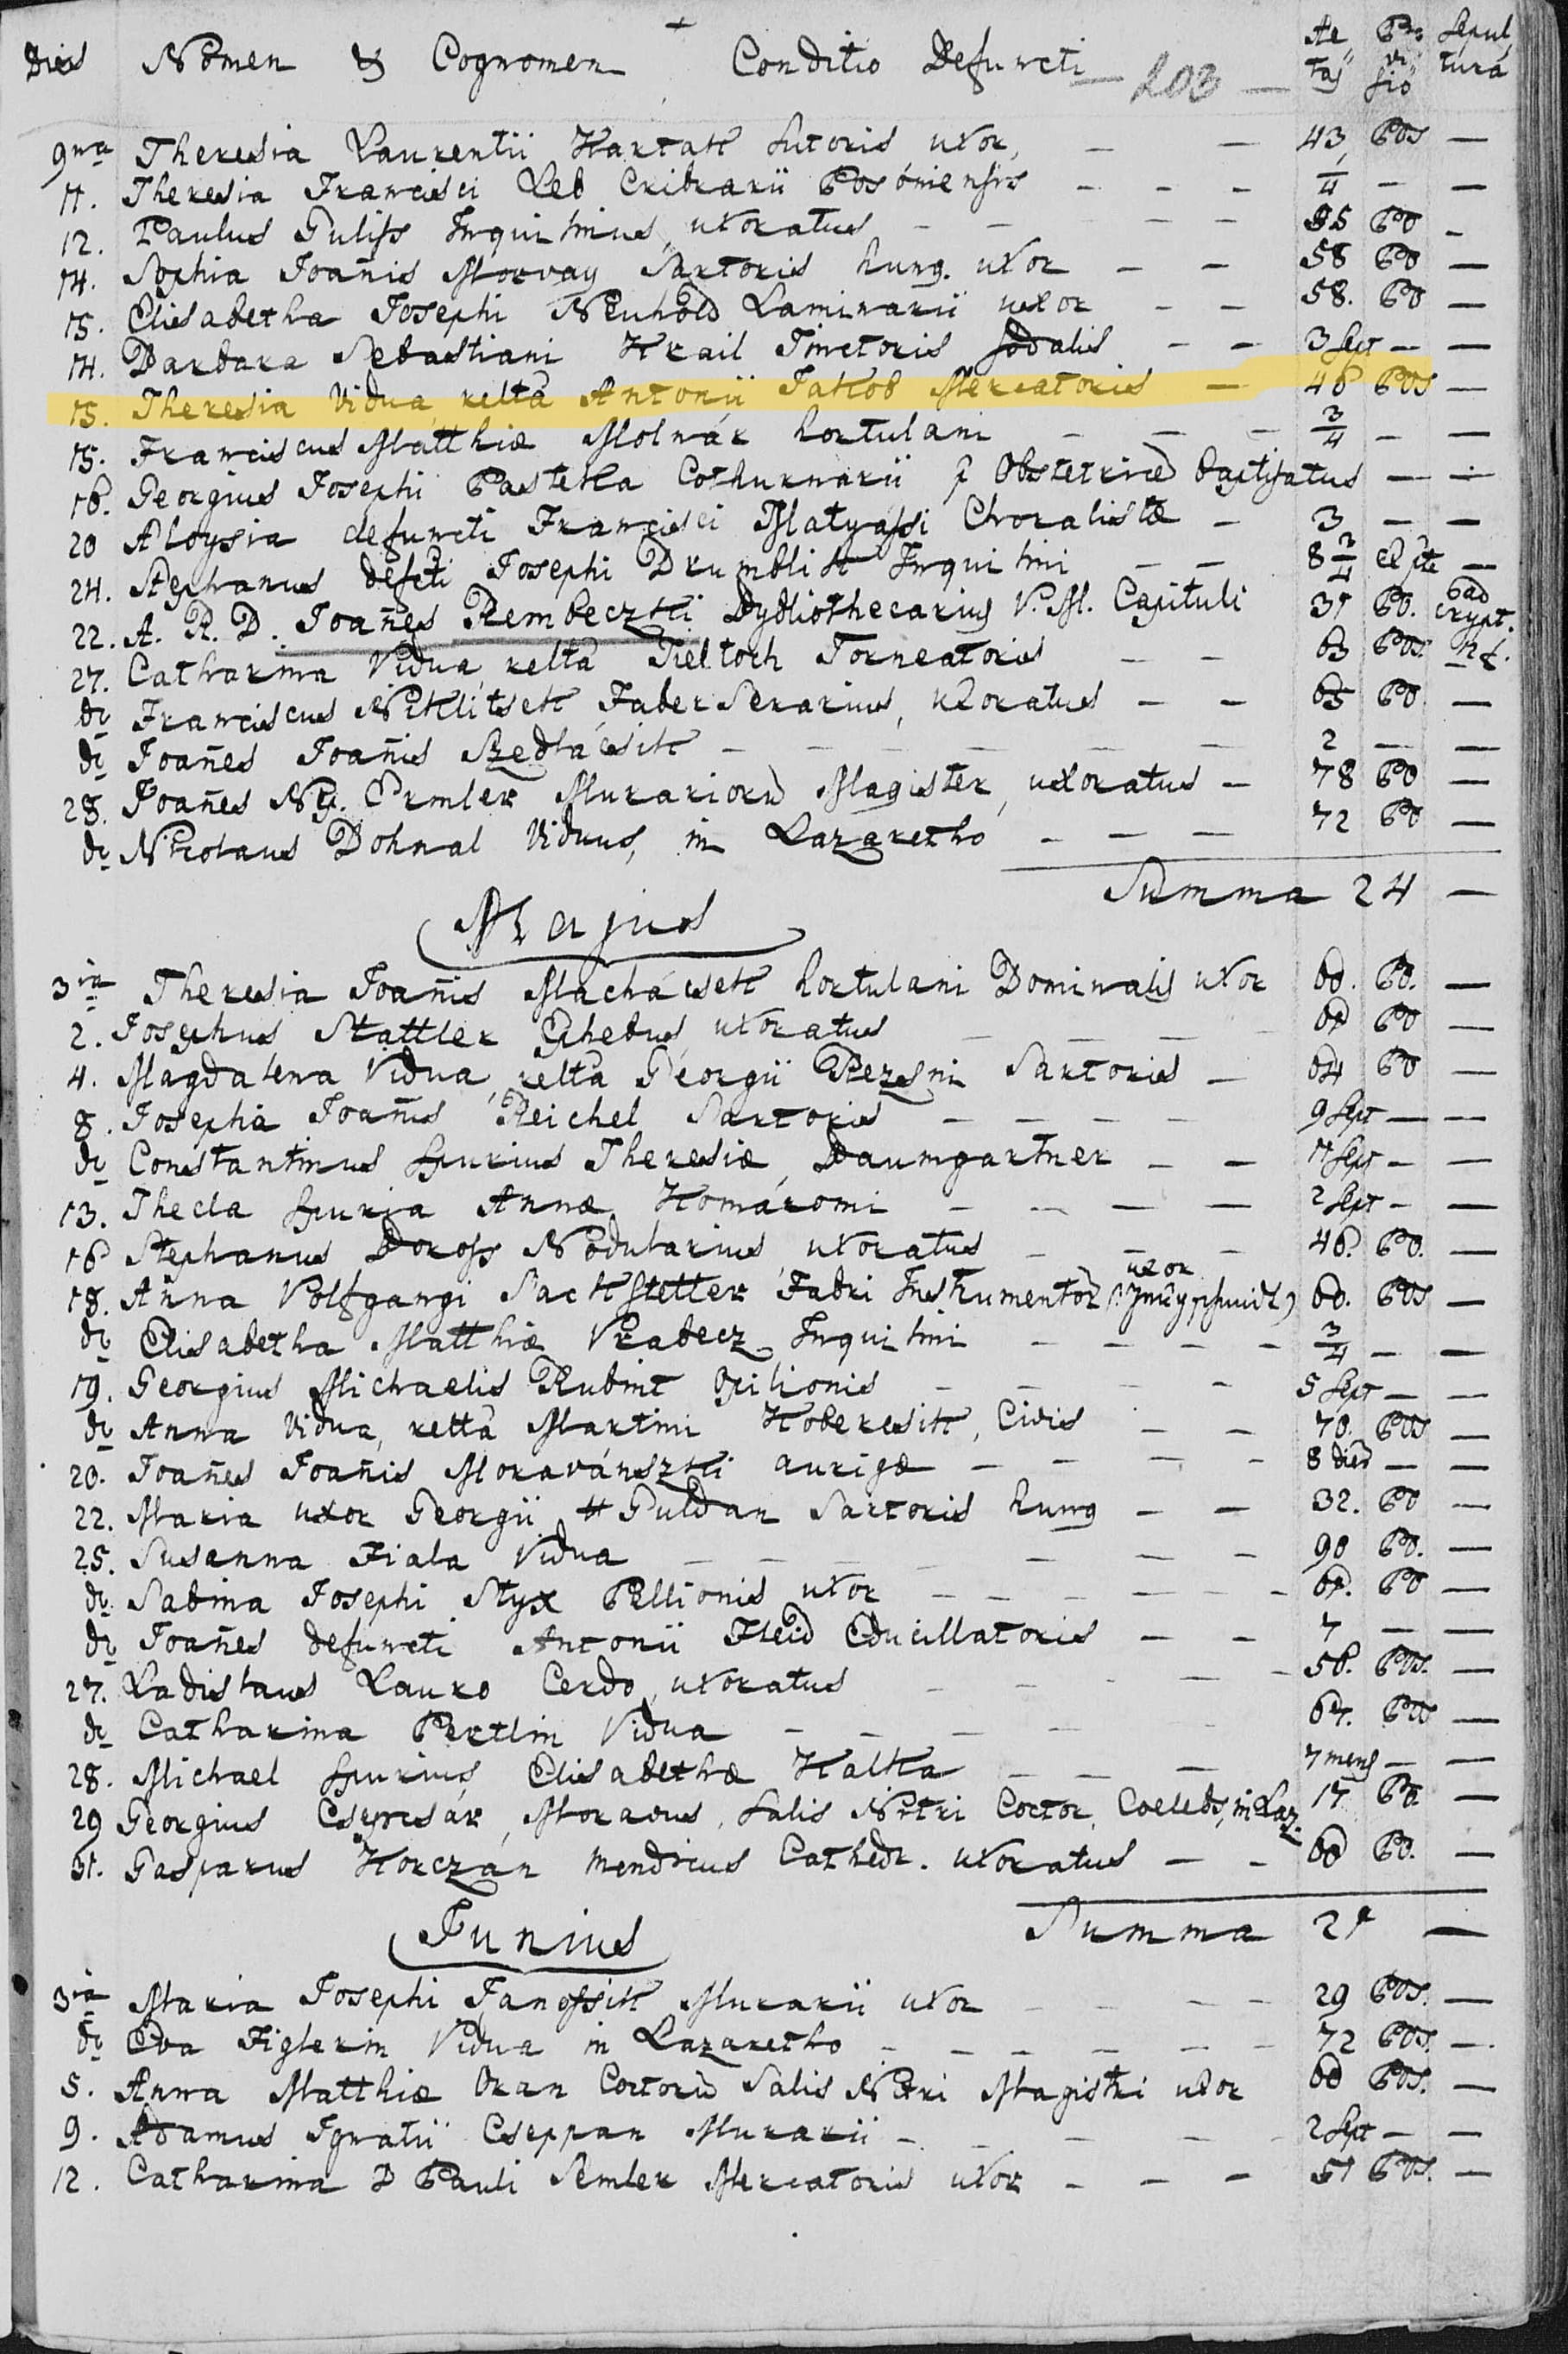 Dies Nomen & Cognomen Conditio Defuncti — 203 — Ae tas Pro vi sio Sepul tura
9na Theresia Laurentii Hartak Sutoris uxor, — — 43 Pos —
11. Theresia Francisci Leb Cribrarii Posoniensis - - - 1/4 — —
12. Paulus Guliss Inquilinus, uxoratus - — - — 85 Po —
14. Sophia Joañis Morvay Sartoris hung. uxor — — 58 Po —
15. Elisabetha Josephi Neuhold Laminarii uxor — — 58. Po —
14. Barbara Sebastiani Krail Tinctoris sodalis — — 3 Sept — —
15. Theresia Vidua, relta Antonii Jakob Mercatoris — 46 Pos —
15. Franciscus Matthiæ Molnár hortulani — — - 3/4 — —
16. Georgius Josephi Pastetka Cothurnarii p Obstetrice baptisatus — —
20 Aloysia defuncti Francisci Matyassi Choralistæ — 3 — —
24. Stephanus defcti Josephi Drumblik Inquilini — — 8 3/4 —
22. A. R. D. Joañes Rembeczki Bybliothecarius V. M. Capituli 31 Po. ad Crypt.
27. Catharina Vidua, relta Tieltoch Torneatoris — — 63 Pos.
do Franciscus Niklitsek Faber Serarius, uxoratus — — 65 Po —
do Joañes Joañis Szedlácsik — — — — 2 — —
28. Joañes Np. Ermler Murarioru Magister, uxoratus — 78 Po —
do Nicolaus Dohnal Viduus, in Lazaretho - — — 72 Po —
Summa 24 —
Majus
3ia Theresia Joañis Machácsek hortulani Dominalis uxor 60. Po. —
2. Josephus Stattler Ephebus, uxoratus — — Po —
4. Magdalena Vidua, relta Georgii Rezsni Sartoris — 64 Po —
8. Josepha Joañis Reichel Sartoris — — — — 9 Sept — —
do Constantinus Spurius Theresiæ Baumgartner — — 7 Sept — —
13. Thecla Spuria Annæ Komáromi — — — — 2 Sept — —
16 Stephanus Boross Nodularius, uxoratus — — - 46. Po. —
18. Añna Volfgangi Sackstetter Fabri Instrumentor uxor 60. Pos —
do Elisabetha Matthiæ Vrabecz Inquilini — — — - 3/4 — —
19. Georgius Michaelis Rubint Opilionis — — — - 5 Sept — —
do Anna Vidua, relta Martini Koberesik, Civis — — 70. Pos —
20. Joañes Joañis Moravánszki aurigæ — - — - 8 dieu — —
22. Maria uxor Georgii Guldan Sartoris hung — — 32. Po —
25. Susanna Fiala Vidua — — — — — — - 90 Po. —
do Sabina Josephi Styx Pellionis uxor — — — — - Po —
do Joañes defuncti Antonii Fleid Educillatoris — - 7 — —
27. Ladislaus Lauro Cerdo, uxoratus — — - — - 56. Pos. —
do Catharina Pertlin Vidua — — — — — 67. Pos —
28. Michael Spurius Elisabethæ Kalka — — — 7 mens — —
29 Georgius Csepcsár, Moravus, Salis Nitri Coctor, Coelebs, in Laz. 17 Po. —
31. Gasparus Horczán Mendicus Cathedr. uxoratus — - 60 Po. —
Summa 21 —
Junius
3ia Maria Josephi Janossik Murarii uxor — — — — 29 Pos. —
do Eva Figlerin Vidua in Lazaretho — — — — — - 72 Pos. —
5. Anna Matthiæ Oran Coctoru Salis Nitri Magistri uxor 60 Pos. —
9. Adamus Ignatii Cseppan Murarii — — — — 2 Sept — —
12. Catharina D Pauli Semler Mercatoris uxor — — — 51 Pos. —